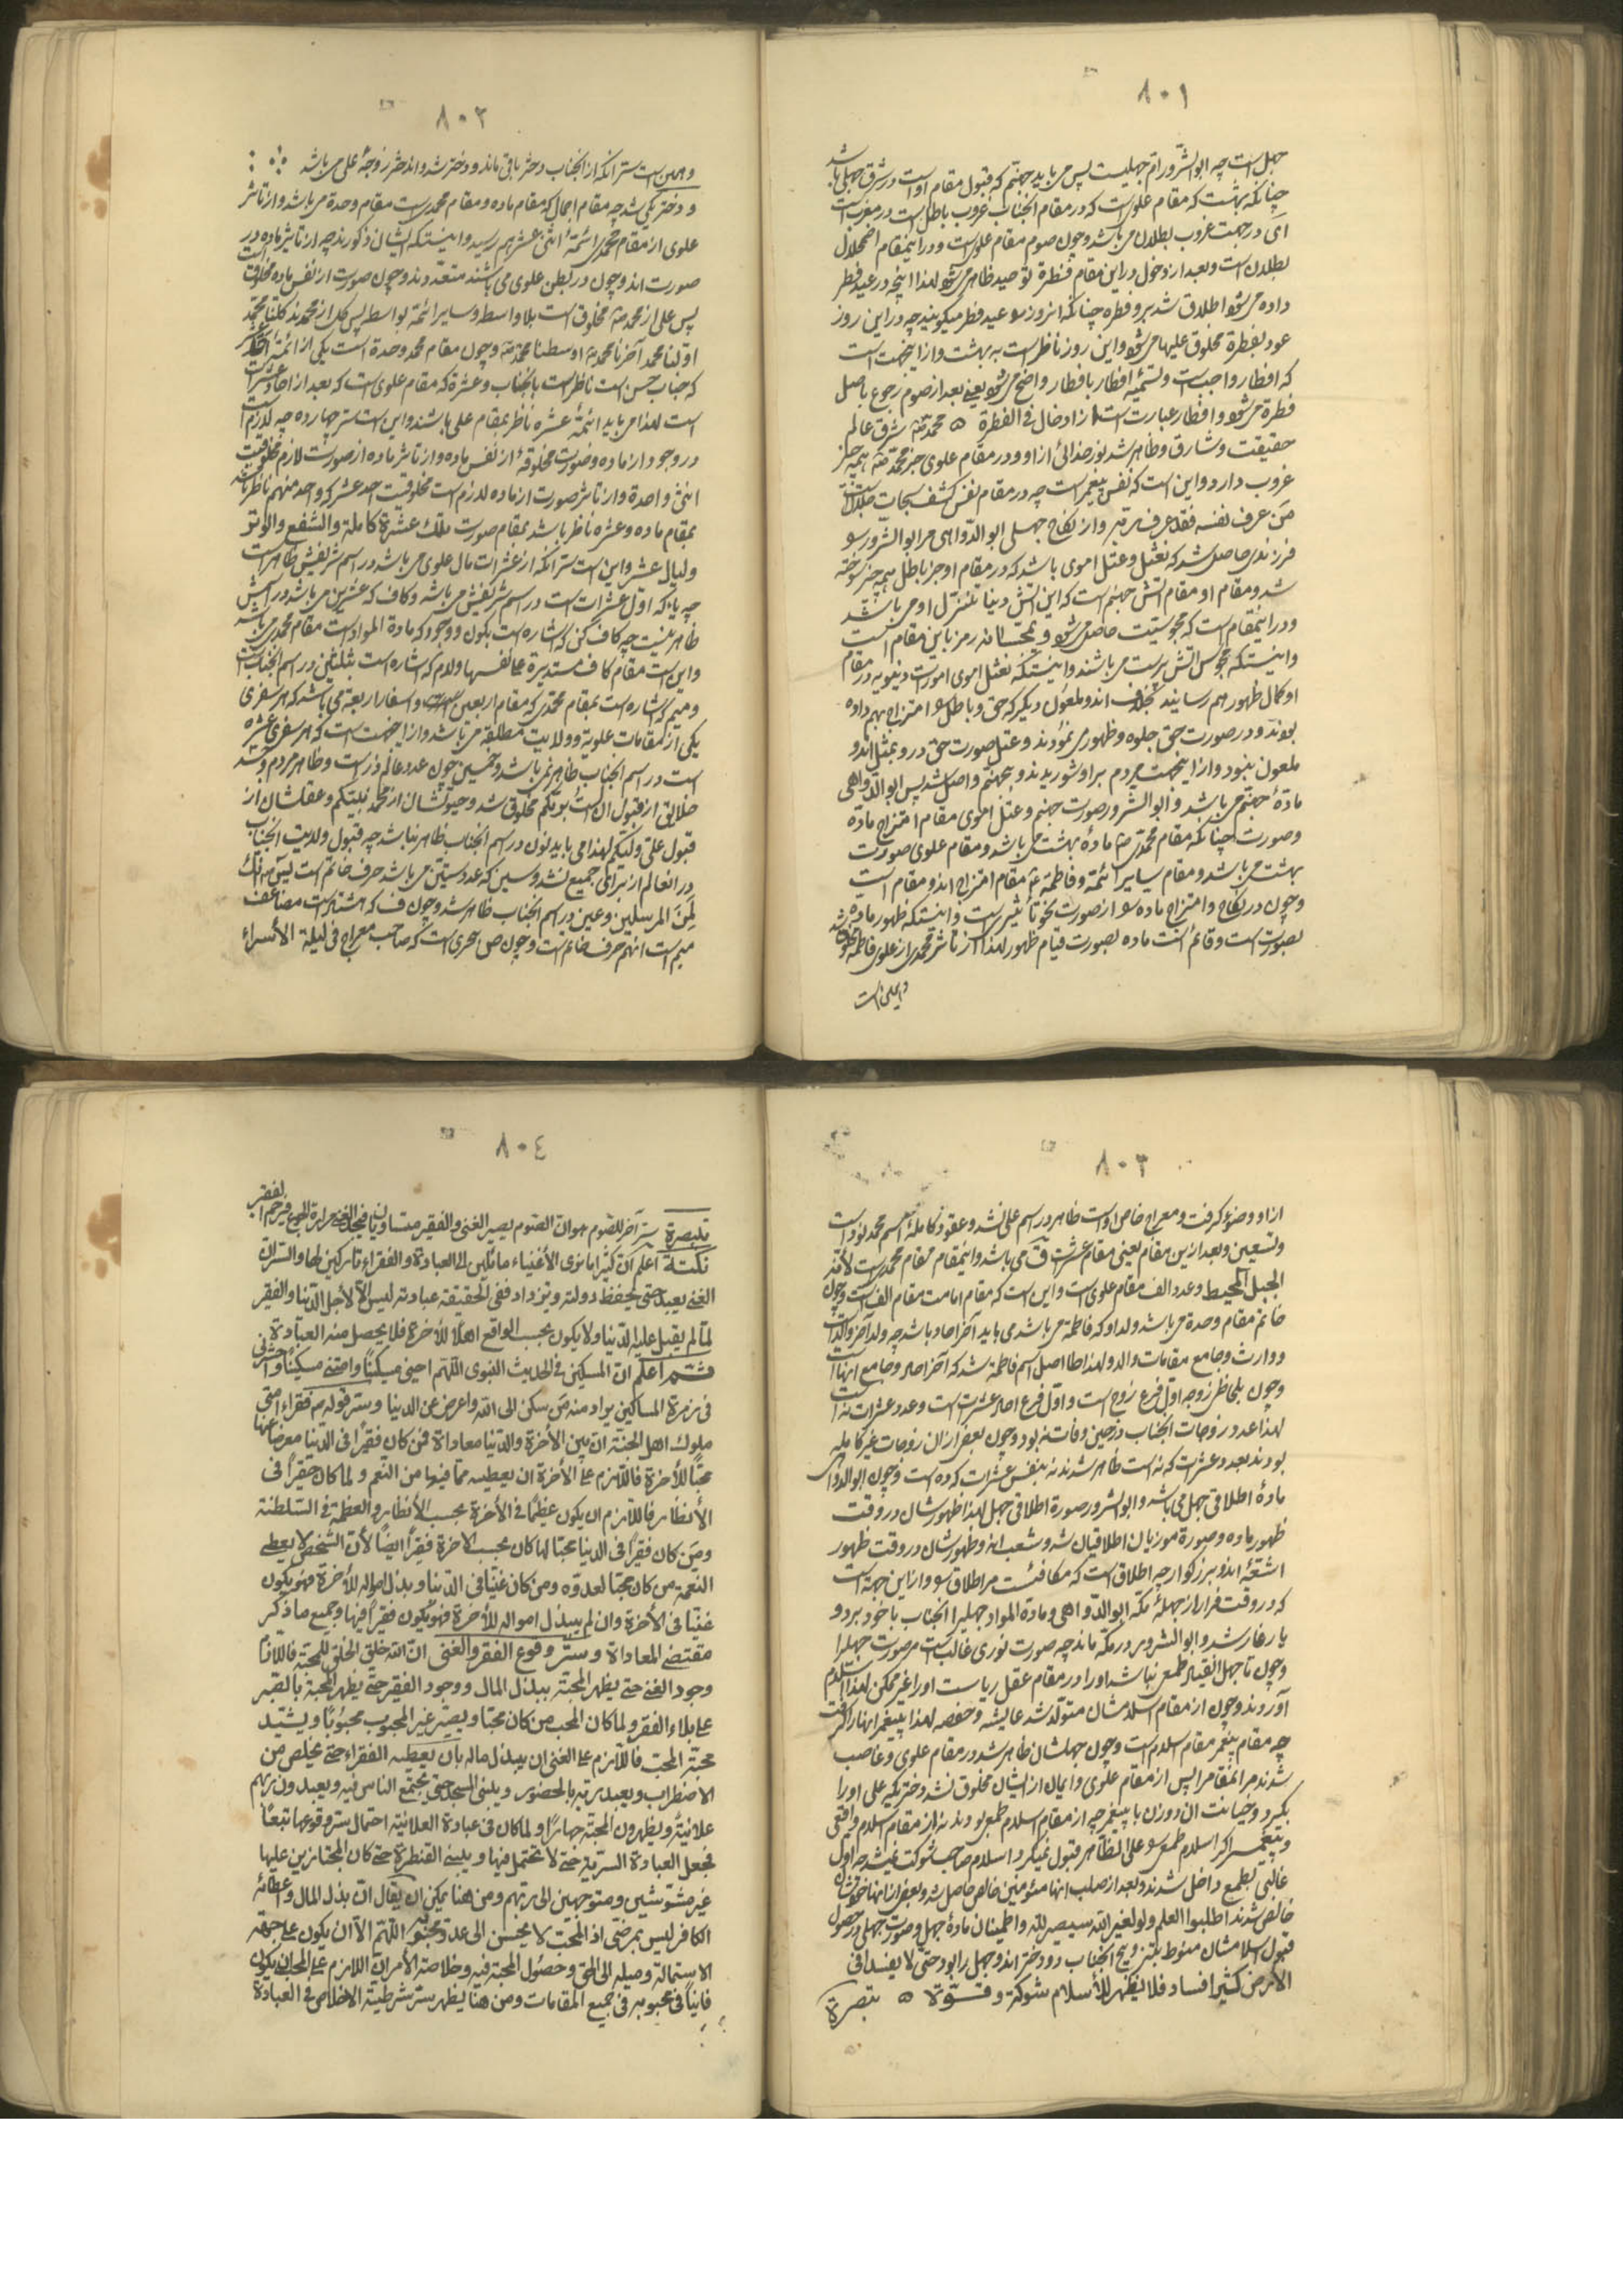 ٨٠١
جهل است چه ابوالشرور ام جهلیست پس می باید جهنم که قبول مقام او است در شرق جهلی باشد
چنانکه بهشت که مقام علوی است که در مقام انجناب غروب باطل است در مغرب است
ای در جهت غروب بطلان می باشد و چون صوم مقام علوی است و در اینمقام اضمحلال
بطلان است و بعد از دخول در این مقام فطرة توحید ظاهر می شود لهذا اینچه در عید فطر
داده می شود اطلاق شد برو فطره چنانکه انروز را عید فطر میگویند چه در این روز
عود بفطرة مخلوق علیها می شود و این روز ناظر است به بهشت و از اینجهت است
که افطار واجب است و تسمیه افطار بافطار واضح می شود یعنی بعد از صوم رجوع باصل
فطرة می شود و افطار عبارت است از ادخال فی الفطرة محمد شرق عالم
حقیقت و شارق و ظاهر شد نور خدائی از او و در مقام علوی جز محمد همه چیز
غروب دارد و این است که نفس پیغمبر است چه در مقام نفس کشف سبحات جلال است
من عرف نفسه فقد عرف ربه و از نکاح جهلی ابو الدواهی مر ابو الشرور را
فرزندی حاصل شد که نعثل و عتل اموی باشد که در مقام او جز باطل همه چیز سوخته
شد و مقام او مقام اتش جهنم است که این اتش دنیا تنزل او می باشد
و در اینمقام است که مجوسیت حاصل می شود و رمز باین مقام است
و اینستکه مجوس اتش پرست می باشند و اینستکه نعثل اموی امورات دنیویه در مقام
او کمال ظهور بهم رسانیدند بخلاف اند و ملعون دیگر که حق و باطل را امتزاج بهم داده
بودند و در صورت حق جلوه و ظهور می نمودند و عتل صورت حق در و بمثل اندو
ملعون نبود و از اینجهت مردم بر او شوریدند و بجهنم واصل شد پس ابوالدواهی
مادهٔ جهنم می باشد و ابوالشرور صورت جهنم و عتل اموی مقام امتزاج ماده
و صورت چنانکه مقام محمدی مادهٔ بهشت می باشد و مقام علوی صورت
بهشت می باشد و مقام سایر ائمه و فاطمه مقام امتزاج اند و مقام است
و چون در نکاح و امتزاج ماده را از صورت نحو تأثیری است و اینستکه ظهور ماده
بصورت است و قائم است ماده بصورت قیام ظهور لهذا از تأثر محمدی از علوی فاطمه مخلوق شد
و همین است
٨٠٢
و همین است سر انکه از انجناب دختر باقی ماند و دختر شد و اندختر زوجهٔ علی می باشد
و دختر یکی شد چه مقام اجمال که مقام ماده و مقام محمدیست مقام وحدة می باشد و از تأثر
علوی از مقام محمدی ائمهٔ اثنی عشر بهم رسید و اینستکه ایشان ذکورند چه از تأثیر ماده در
صورت اند و چون در بطن علوی می باشند متعددند و چون صورت از نفس ماده مخلوق است
پس علی از محمد مخلوق است بلا واسطه و سایر ائمه بواسطه پس کل از محمدند کلنا محمد
اولنا محمد آخرنا محمد اوسطنا محمد و چون مقام محمد وحدة است یکی از ائمهٔ اثنی عشر
که جناب حسن است ناظر است بانجناب و عشرة که مقام علوی است که بعد از احاد عشرات
است لهذا می باید ائمهٔ عشره ناظر بمقام علی باشند و این است سر چهارده چه لازم است
در وجود از ماده و صورت مخلوقهٔ از نفس ماده و از تأثر ماده از صورت لازم مخلوقیت
انثی واحدة و از تأثر صورت از ماده لازم است مخلوقیت احد عشر که واحد منهم ناظر باشد
بمقام ماده و عشره ناظر باشد بمقام صورت تلك عشرة کاملة والشفع والوتر
ولیال عشر و این است سر انکه از عشرات مال علوی می باشد در اسم شریفش ظاهر است
چه یاء که اول عشرات است در اسم شریفش می باشد و کاف که عشرین می باشد در اسمش
ظاهر نیست چه کاف کن که اشاره است بکون و وجود که مادة المواد است مقام محمد می باشد
و این است مقام کاف مستدیرة علی نفسها و لام که اشاره است بثلثین در اسم انجناب است
و میم که اشاره است بمقام محمدی که مقام اربعین است و اسفار اربعه می باشد که هر سفری
یکی از مقامات علویه و ولایت مطلقه می باشد و از اینجهت است که هر سفری عشره
است در اسم انجناب ظاهر نمی باشد و خمسین چون عدد عالم ذر است و ظاهر مردم و شد
خلایق از قبول الست بربکم مخلوق شد و حیوتشان از محمد نبیکم و عقلشان از
قبول علی ولیکم لهذا می باید نون در اسم انجناب ظاهر نباشد چه قبول ولایت انجناب
در انعالم از برای جمیع نشد و سین که عدد ستین می باشد حرف خاتم است یس انك
لمن المرسلین و عین در اسم انجناب ظاهر شد و چون ف که هشتاد است مضاعف
میم است انهم حرف خاتم است و چون ص بحری است که صاحب معراج فی لیلة الأسراء
٨٠٣
از او وضوء گرفت و معراج خاص او است ظاهر در اسم علی نشد و عقود کامله اسم محمد نود است
و تسعین و بعد از این مقام یعنی مقام عشرات ق می باشد و اینمقام مقام محمدیست لأنه
الجبل المحیط و عدد الف مقام علوی است و این است که مقام امامت مقام الف است و چون
خاتم مقام وحدة می باشد و لد او که فاطمه می باشد می باید آخر احاد باشد چه ولد آخر والد است
و وارث و جامع مقامات والد و لهذا طا اصل اسم فاطمه شد که آخر احاد و جامع انهاست
و چون بلحاظی زوجه اول فرع زوج است و اول فرع احاد عشرات است و عدد عشرات نه است
لهذا عدد زوجات انجناب در حین وفات نه بود و چون بعضی از ان زوجات غیر کامله
بودند بعدد عشرات که نه است ظاهر شدند نه بنفس عشرات که ده است و چون ابوالدواهی
مادهٔ اطلاقی جهل می باشد و ابوالشرور صورة اطلاقی جهل لهذا ظهورشان در وقت
ظهور ماده و صورة موزیان اطلاقیان شد و شعب اند و ظهورشان در وقت ظهور
اشعهٔ اندو بزرگوار چه اطلاق است که مکافئست مر اطلاق را و از این جهة است
که در وقت فرار از جهلهٔ مکه ابوالدواهی و مادة المواد جهلیه را انجناب با خود برد و
یار غار شد و ابوالشرور در مکه ماند چه صورت نوری غالب است مر صورت جهل را
و چون تا جهل انقیاد طمعی نباشد او را در مقام عقل ریاست او را غیر ممکن لهذا اسلام
آوردند و چون از مقام اسلامشان متولد شد عایشه و حفصه لهذا پیغمبر انها را گرفت
چه مقام پیغمبر مقام اسلام است و چون جهلشان ظاهر شد در مقام علوی و غاصب
شدند مر انمقام را پس از مقام علوی و ایمان از ایشان مخلوق نشد دختر یکه علی او را
بگیرد و خیانت ان دو زن با پیغمبر چه از مقام اسلام طمعی بودند نه از مقام اسلام واقعی
و پیغمبر اگر اسلام طمعی را علی الظاهر قبول نمیکرد اسلام صاحب شوکت نمیشد چه اول
غالبی بطمع داخل شدند و بعد از صلب انها مؤمنین خالص حاصل شد و بعضی از انها خودشان
خالص شدند اطلبوا العلم ولو لغیر الله سیصیر لله و اطمینان مادهٔ جهل و صورت جهلی در حصول
قبول اسلامشان منوط بتزویج انجناب دو دختر اندو جهل را بود حتی لا یفسدا فی
الارض کثیر افساد فلا یظهر للأسلام شوکة و قوة
تبصرة
٨٠٤
تبصرة سر آخر للصوم هو ان الصوم یصیر الغنی و الفقیر متساویان فیجد الغنی حرارة الجوع فیرحم الفقیر
نکتة اعلم ان کثیرا ما نری الأغنیاء مائلین الی العبادة و الفقراء تارکین لها و السر ان
الغنی یعبد حتی یحفظ دولته و تزداد ففی الحقیقة عبادته لیس الا لأجل الدنیا و الفقیر
لما لم یقبل علیه الدنیا و لا یکون بحسب الواقع اهلًا للأخرة فلا یحصل منه العبادة
ثم اعلم ان المسکین فی الحدیث النبوی اللهم احینی مسکینًا و امتنی مسکینًا و احشرنی
فی زمرة المساکین یراد منه من سکن الی الله و اعرض عن الدنیا و سر قوله فقراء امتی
ملوك اهل الجنة ان بین الأخرة و الدنیا معاداة فمن کان فقیرًا فی الدنیا معرضًا عنها
محبًا للأخرة فاللازم علی الأخرة ان یعطیه مما فیها من النعم و لما کان حقیرًا فی
الأنظار فاللازم ان یکون عظیمًا فی الأخرة بحسب الأنظار و العظمة فی السلطنة
و من کان فقیرًا فی الدنیا محبًا لها کان بحسب الاخرة فقیرًا ایضًا لأن الشخص لا یعطی
النعمة من کان محبًا لعدوه و من کان غنیًا فی الدنیا و بذل امواله للأخرة فهو یکون
غنیًا فی الأخرة و ان لم یبذل امواله للأخرة فهو یکون فقیرًا فیها و جمیع ما ذکر
مقتضی المعاداة و سر وقوع الفقر و الغنی ان الله خلق الخلق للمحبة فاللازم
وجود الغنی حتی یظهر المحبة ببذل المال و وجود الفقیر حتی یظهر المحبة بالصبر
علی بلاء الفقر و لما کان المحب من کان محبًا و یصیر غیر المحبوب محبوبًا و یشتد
محبة المحب فاللازم علی الغنی ان یبذل ماله بأن یعطیه الفقراء حتی یخلص من
الاضطراب و یعبد ربه بالحضور و یبنی المسجد حتی یجتمع الناس فیه و یعبدون ربهم
علانیة و یظهرون المحبة جهارًا و لما کان فی عبادة العلانیة احتمال سر وقوعها تبعًا
فجعل العبادة السریة حتی لا تحتمل فیها و یبنی القنطرة حتی کان المجتازین علیها
غیر مشوشین و متوجهین الی ربهم و من هنا یمکن ان یقال ان بذل المال و اعطائه
الکافر لیس بمرضی اذ المحب لا یحسن الی عدو محبوبه اللهم الا ان یکون علی جهة
الاستمالة و میله الی الحق و حصول المحبة فیه و خلاصة الأمر ان اللازم علی المحب ان یکون
فانیًا فی محبوبه فی جمیع المقامات و من هنا یظهر سر شرطیة الاخلاص فی العبادة